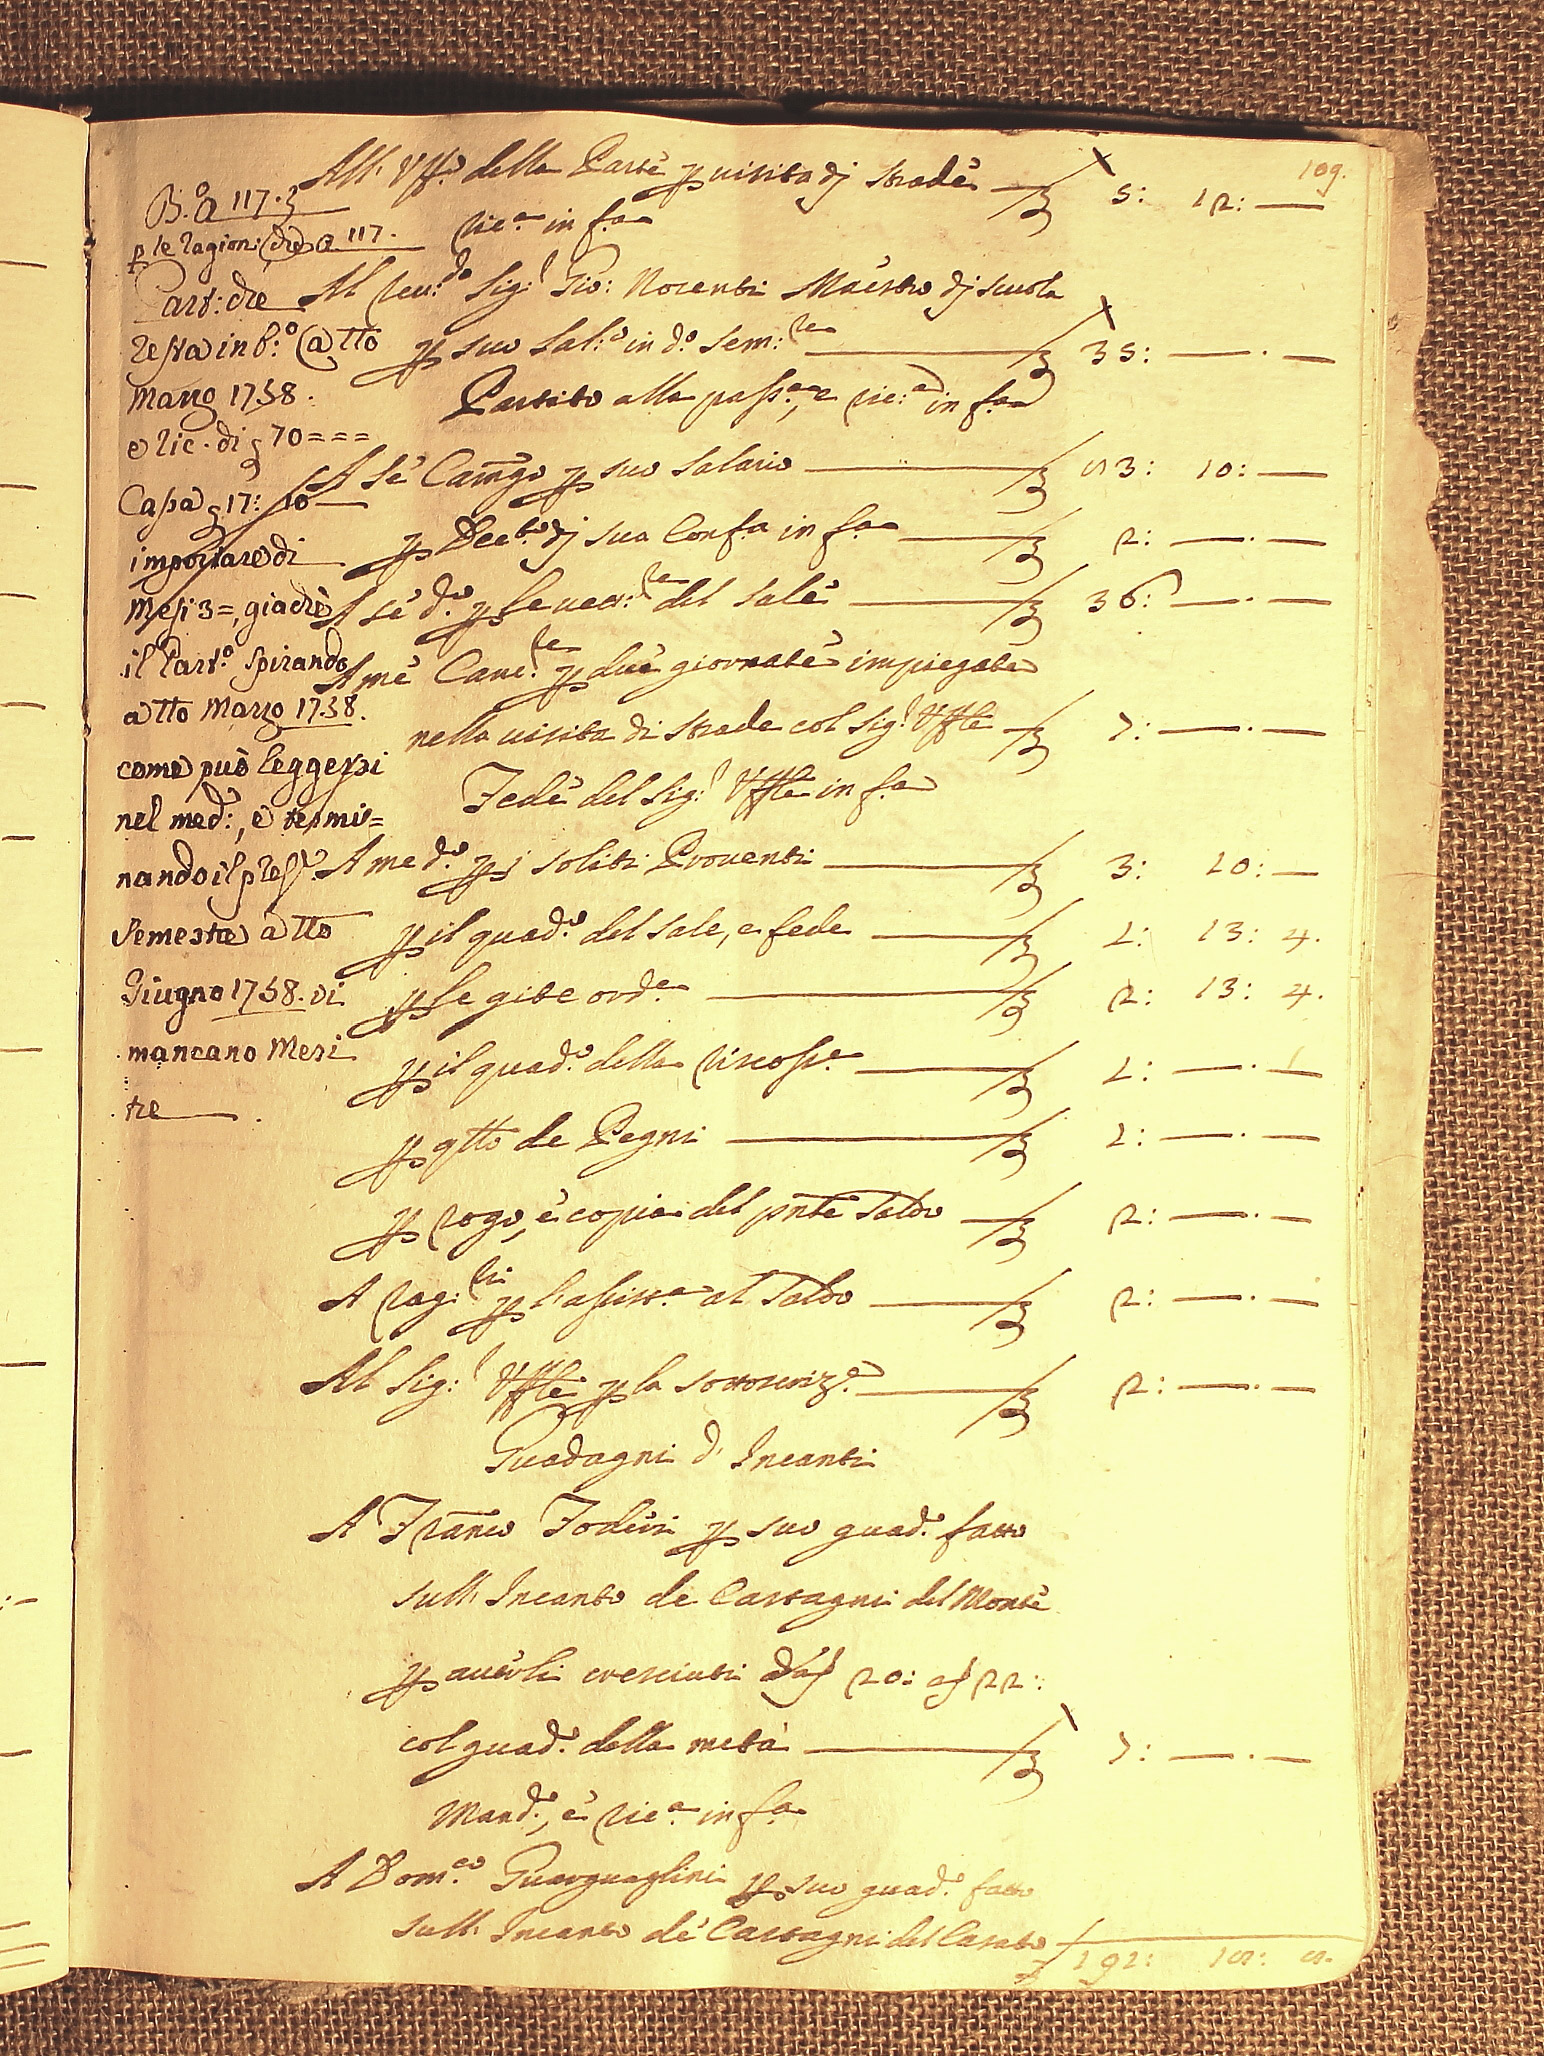 109.
All. Uff.e della Parte p visita dj strade 5: 12: —
ric.a in f.a
Al Reu:do Sig:r Gio: Nocenti Maestro dj scuola
p suo Sal:o in d.o Sem:re 35: — . —
Partito alla pass.a, e ric:a in f.a
A sè Camgo p suo Salario 13: 10: —
p Dec.to dj sua Conf.a in f.a 2: — . —
A sè d.o p le del sale 36: — . —
A mè Canc.re p due giornate impiegate
nella visita di strade col Sig.r Uffle 7: — . —
Fede del Sig:r Uffle in f.a
A me d.o p i soliti Proventi 3: 10: —
p il quad.o del sale, e fede 1: 13: 4.
p le gite ord.e 2: 13: 4.
p il quad.o della riscoss.e 1: — . —
p qtto de Pegni 1: — . —
p rogo, è copia del pnte Saldo 2: — . —
A rag:ri p l'assist.a al Saldo 2: — . —
Al Sig:r Uffle p la sottoscriz.e 2: — . —
Guadagni d' Incanti
A Franco Foderi p suo guad.o fatto
sull. Incanto de Castagni del Monte
p auerli cresciuti da 20: a 22:
col guad.o della metà 7: — . —
Mand.o, è ric.a in f.a
A Dom.co Guarguaglini p suo guad.o fatto
sull. Incanto de' Castagni del
191:
B.o a 117. 3
p le ragioni che a 117.
Part: che
resta in b:o a tto
Marzo 1758.
e ric. di 70===
Casa 17: 10 —
importare di
Mesi 3=, giachè
il Part.o spirando
a tto Marzo 1758.
come può leggersi
nel med:o, e termi=
nando il pres.e
Semestre a tto
Giugno 1758. vi
mancano Mesi
tre — .